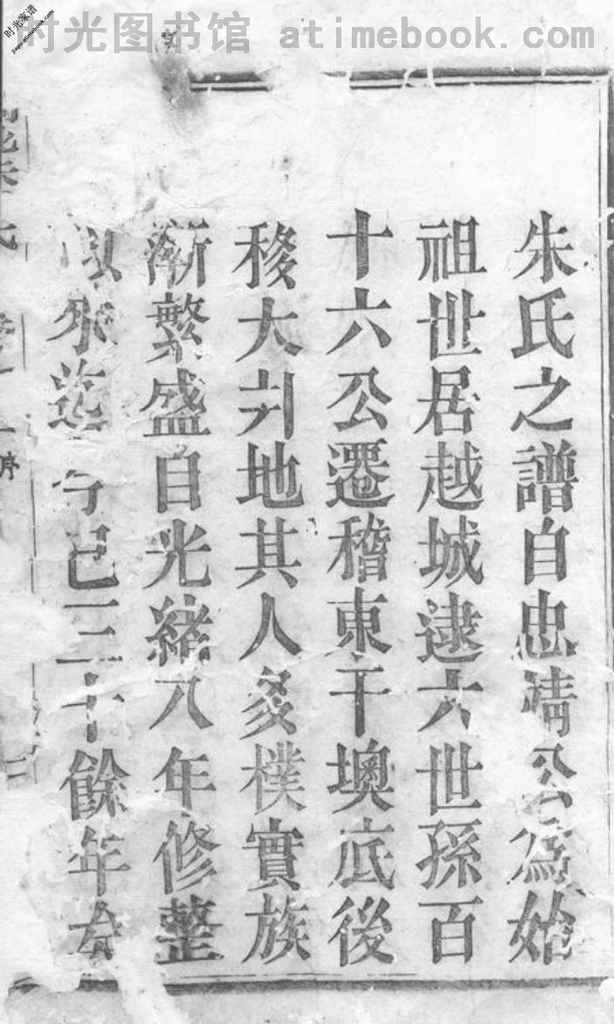 时光图书馆 atimebook.com
朱氏之譜自忠清公為始
祖世居越城逮六世孫百
十六公遷稽東干墺底後
移大刋地其人多樸實族
漸繁盛自光緒八年修整
以來迄今已三十餘年矣